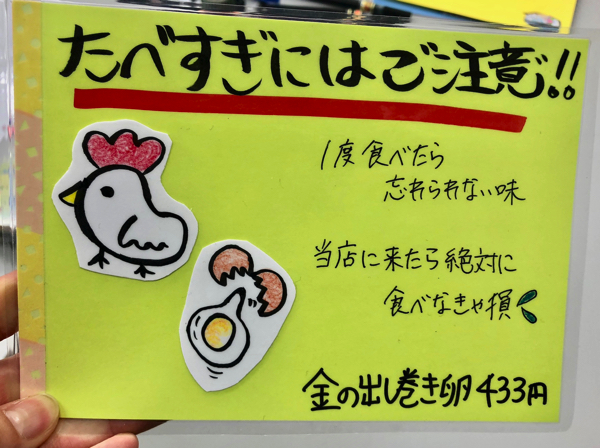 たべすぎにはご注意!!
1度食べたら
忘れられない味
当店に来たら絶対に
食べなきゃ損
金の出し巻き卵433円